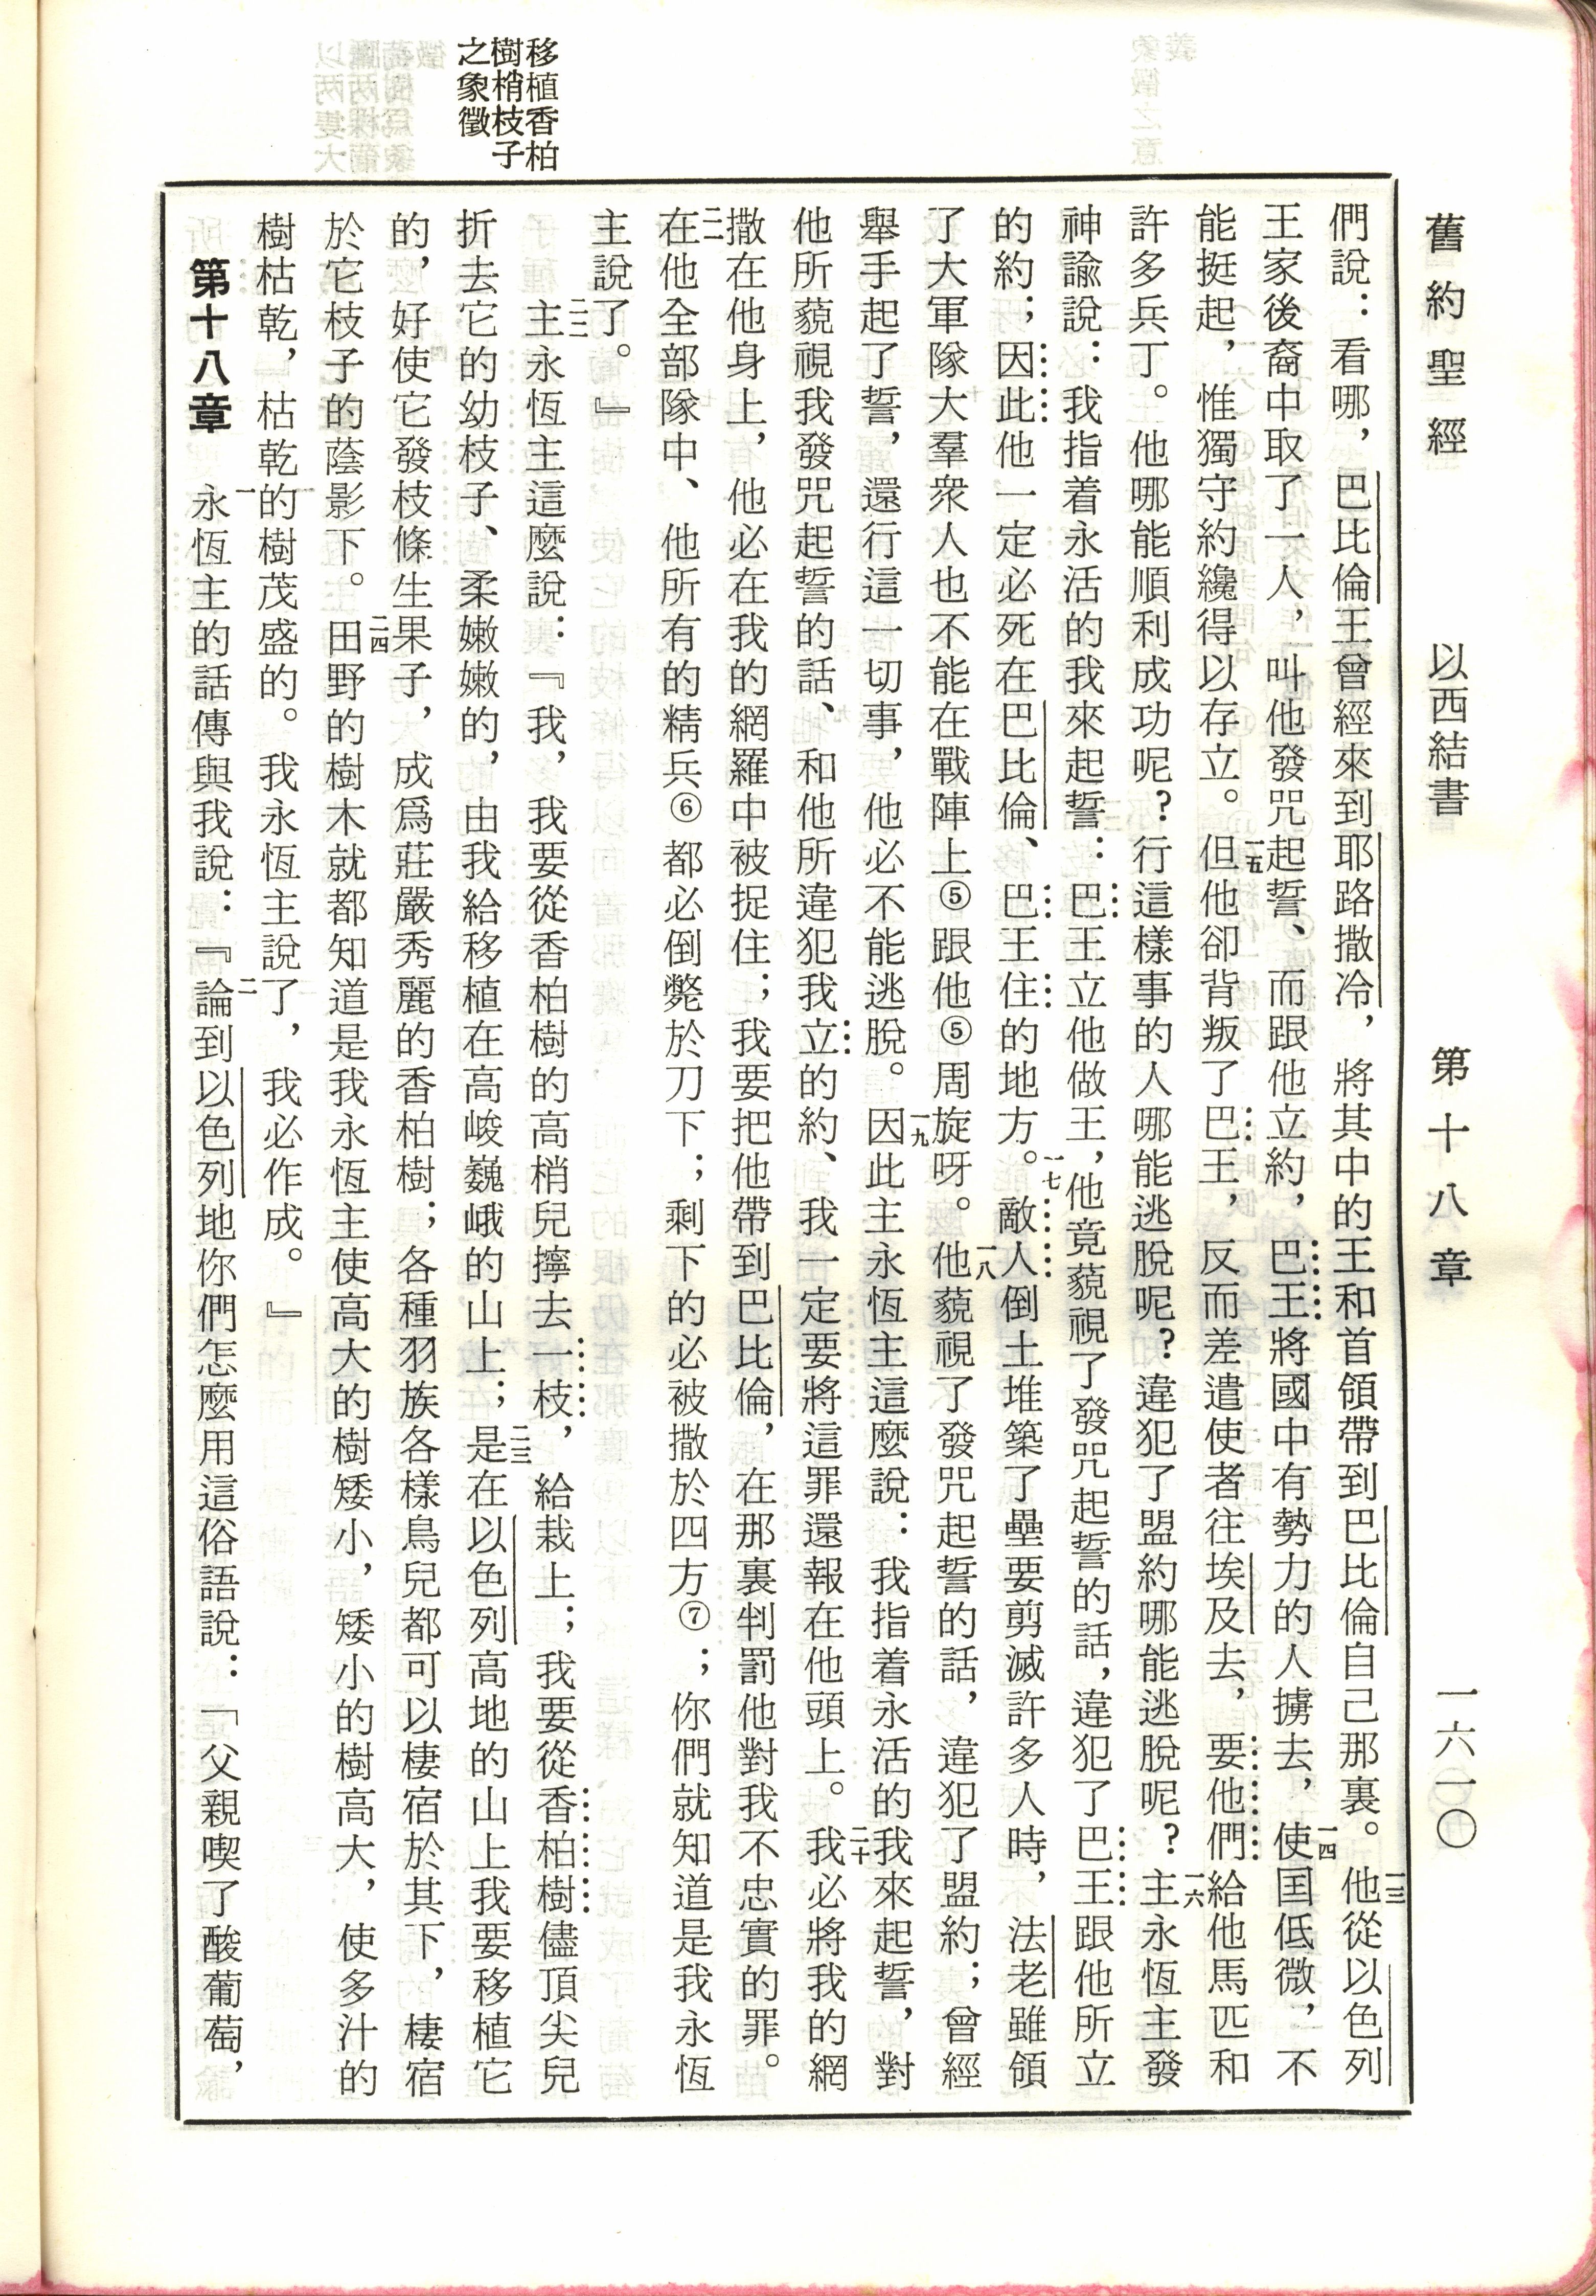 舊約聖經　以西結書　第十八章　一六一〇
們說：看哪，巴比倫王曾經來到耶路撒冷，將其中的王和首領帶到巴比倫自己那裏。一三他從以色列
王家後裔中取了一人，叫他發咒起誓、而跟他立約，巴王將國中有勢力的人擄去，一四使国低微，不
能挺起，惟獨守約纔得以存立。一五但他卻背叛了巴王，反而差遣使者往埃及去，要他們給他馬匹和
許多兵丁。他哪能順利成功呢？行這樣事的人哪能逃脫呢？違犯了盟約哪能逃脫呢？一六主永恆主發
神諭說：我指着永活的我來起誓：巴王立他做王，他竟藐視了發咒起誓的話，違犯了巴王跟他所立
的約；因此他一定必死在巴比倫、巴王住的地方。一七敵人倒土堆築了壘要剪滅許多人時，法老雖領
了大軍隊大羣衆人也不能在戰陣上⑤跟他⑤周旋呀。一八他藐視了發咒起誓的話，違犯了盟約；曾經
舉手起了誓，還行這一切事，他必不能逃脫。一九因此主永恆主這麼說：我指着永活的我來起誓，對
他所藐視我發咒起誓的話、和他所違犯我立的約、我一定要將這罪還報在他頭上。二十我必將我的網
撒在他身上，他必在我的網羅中被捉住；我要把他帶到巴比倫，在那裏判罰他對我不忠實的罪。
二一在他全部隊中、他所有的精兵⑥都必倒斃於刀下；剩下的必被撒於四方⑦；你們就知道是我永恆
主說了。』
二二主永恆主這麼說：『我，我要從香柏樹的高梢兒擰去一枝，給栽上；我要從香柏樹儘頂尖兒
折去它的幼枝子、柔嫩嫩的，由我給移植在高峻巍峨的山上；二三是在以色列高地的山上我要移植它
的，好使它發枝條生果子，成爲莊嚴秀麗的香柏樹；各種羽族各樣鳥兒都可以棲宿於其下，棲宿
於它枝子的蔭影下。二四田野的樹木就都知道是我永恆主使高大的樹矮小，矮小的樹高大，使多汁的
樹枯乾，枯乾的樹茂盛的。我永恆主說了，我必作成。』
第十八章　一永恆主的話傳與我說：『二論到以色列地你們怎麼用這俗語說：「父親喫了酸葡萄，
移植香柏
樹梢枝子
之象徵